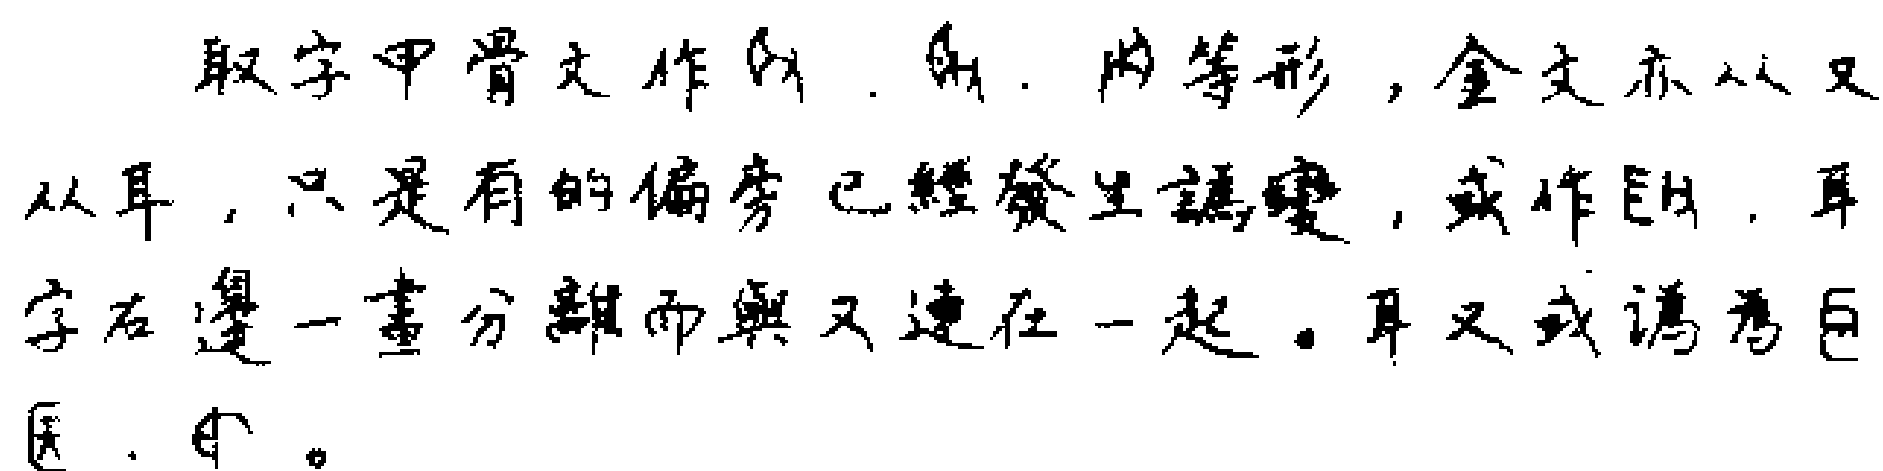 取字甲骨文作、、等形，金文亦从又
从耳，只是有的偏旁已經發生譌變，或作、耳
字右邊一畫分離而與又連在一起。耳又或譌為
、。